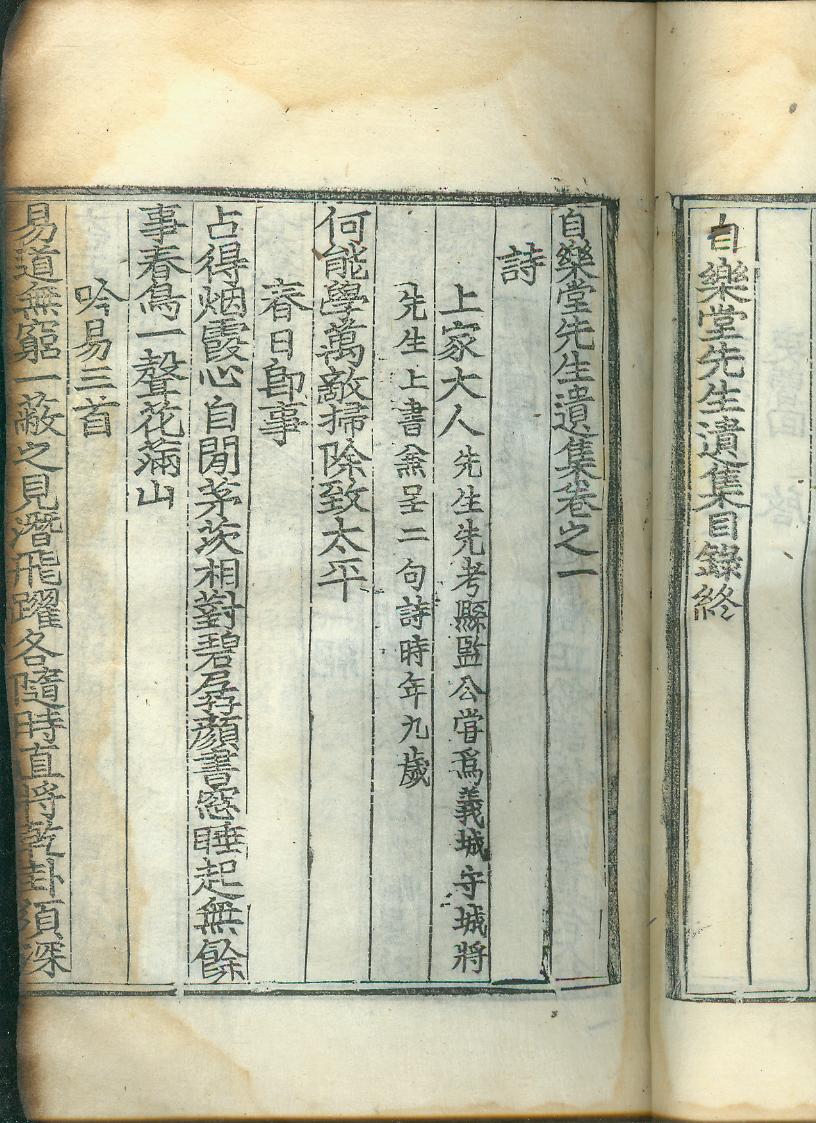 自樂堂先生遺集目錄終
自樂堂先生遺集卷之一
詩
上家大人先生先考縣監公嘗爲義城守城將
先生上書兼呈二句詩時年九歲
何能學萬敵掃除致太平
春日卽事
占得烟霞心自閒茅茨相對碧孱顔書窓睡起無餘
事春鳥一聲花滿山
吟易三首
易道無窮一蔽之見潛飛躍各隨時直將乾卦須深